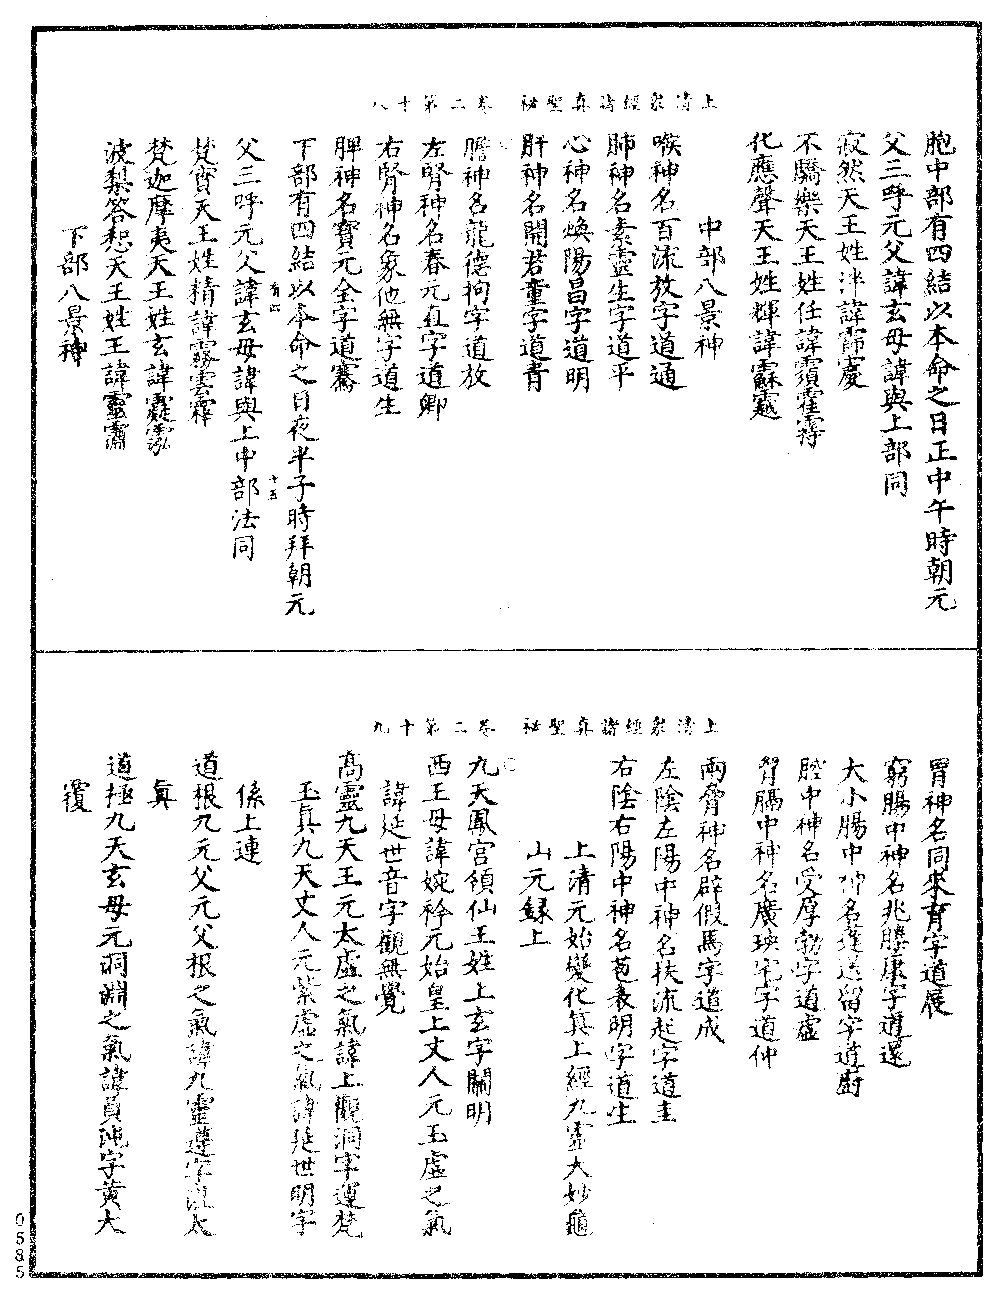 上清衆經諸真聖秘　卷二第十八
胞中部有四結以本命之日正中午時朝元
父三呼元父諱玄母諱與上部同
寂然天王姓泮諱霈慶
不驕樂天王姓任諱霣霍霘
化應聲天王姓輝諱霖
中部八景神
喉神名百流放字道通
肺神名素靈生字道平
心神名煥陽昌字道明
肝神名開君童字道青
膽神名龍德拘字道放
左腎神名春元直字道卿
右腎神名象他無字道生
脾神名寶元全字道騫
下部有四結以本命之日夜半子時拜朝元
父三呼元父諱玄母諱與上中部法同
梵寶天王姓精諱霧雲霏
梵迦摩夷天王姓玄諱
波梨答惒天王姓王諱靈霄
下部八景神
有四
十五
上清衆經諸真聖秘　卷二第十九
胃神名同來育字道展
窮腸中神名兆騰康字道還
大小腸中神名蓬送留字道廚
腔中神名受厚勃字道虛
胷膈中神名廣瑛宅字道仲
兩脅神名辟假馬字道成
左陰左陽中神名扶流起字道圭
右陰右陽中神名苞表明字道生
上清元始變化真上經九靈大妙龜
山元錄上
九天鳳宮領仙王姓上玄字闢明
西王母諱婉衿元始皇上丈人元玉虛之氣
諱延世音字觀無覺
高靈九天王元太虛之氣諱上觀洞字運梵
玉真九天丈人元紫虛之氣諱延世明字
係上連
道根九元父元父根之氣諱九靈遵字混太
真
道極九天玄母元洞淵之氣諱員沌字黃大
覆
0585